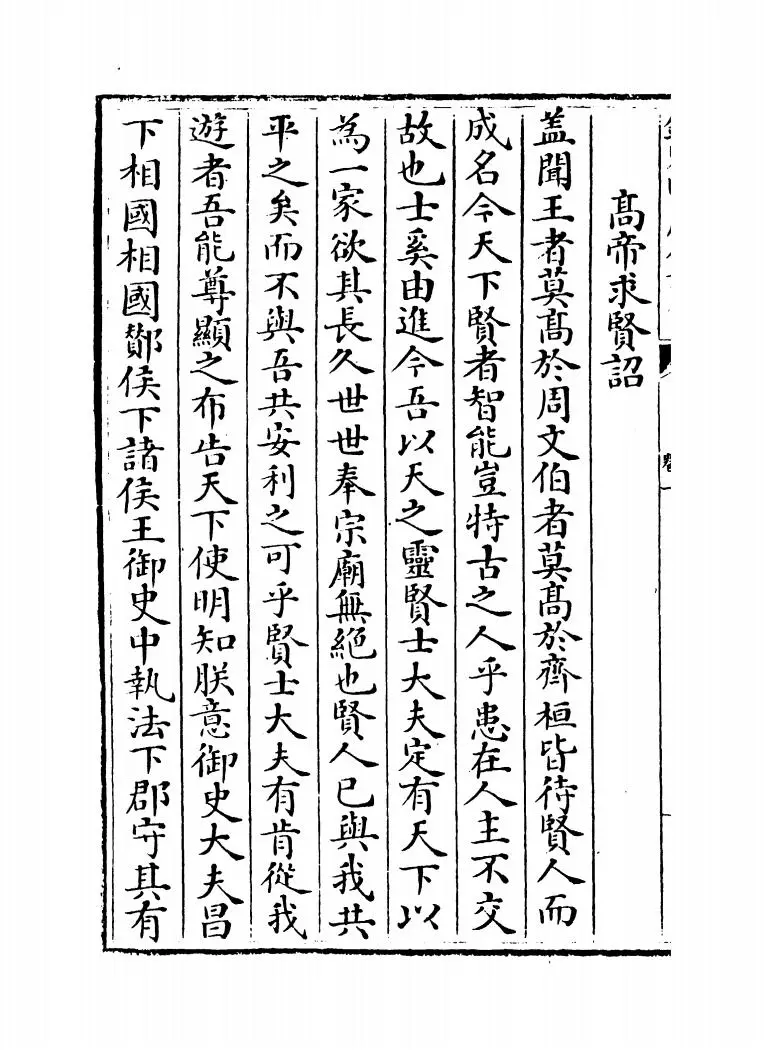 髙帝求賢詔
盖聞王者莫髙於周文伯者莫髙於齊桓皆待賢人而
成名今天下賢者智能豈特古之人乎患在人主不交
故也士奚由進今吾以天之靈賢士大夫定有天下以
為一家欲其長久世世奉宗廟無絶也賢人已與我共
平之矣而不與吾共安利之可乎賢士大夫有肯從我
遊者吾能尊顯之布告天下使明知朕意御史大夫昌
下相國相國酇侯下諸侯王御史中執法下郡守其有